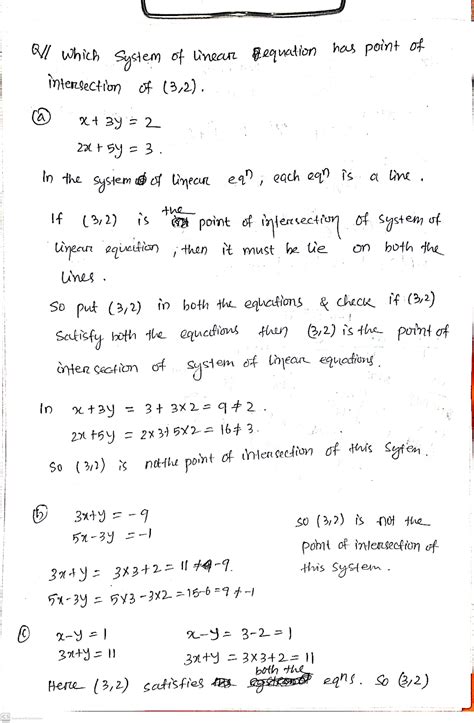 Q// Which System of linear equation has point of
intersection of (3,2).
(a) x + 3y = 2
2x + 5y = 3.
In the system of linear eqn, each eqn is a line.
If (3,2) is the point of intersection of system of
linear equation, then it must be lie on both the
lines.
So put (3,2) in both the equations & check if (3,2)
satisfy both the equations then (3,2) is the point of
intersection of system of linear equations.
In x+3y = 3+3×2 = 9 ≠ 2.
2x+5y = 2×3+5×2 = 16 ≠ 3.
So (3,2) is not the point of intersection of this System.
(b) 3x+y = -9
5x-3y = -1
3x+y = 3×3+2 = 11 ≠ -9.
5x-3y = 5×3-3×2 = 15-6 = 9 ≠ -1
so (3,2) is not the
point of intersection of
this system.
(c) x-y = 1 x-y = 3-2 = 1
3x+y = 11 3x+y = 3×3+2 = 11
Here (3,2) satisfies both the eqns. So (3,2)